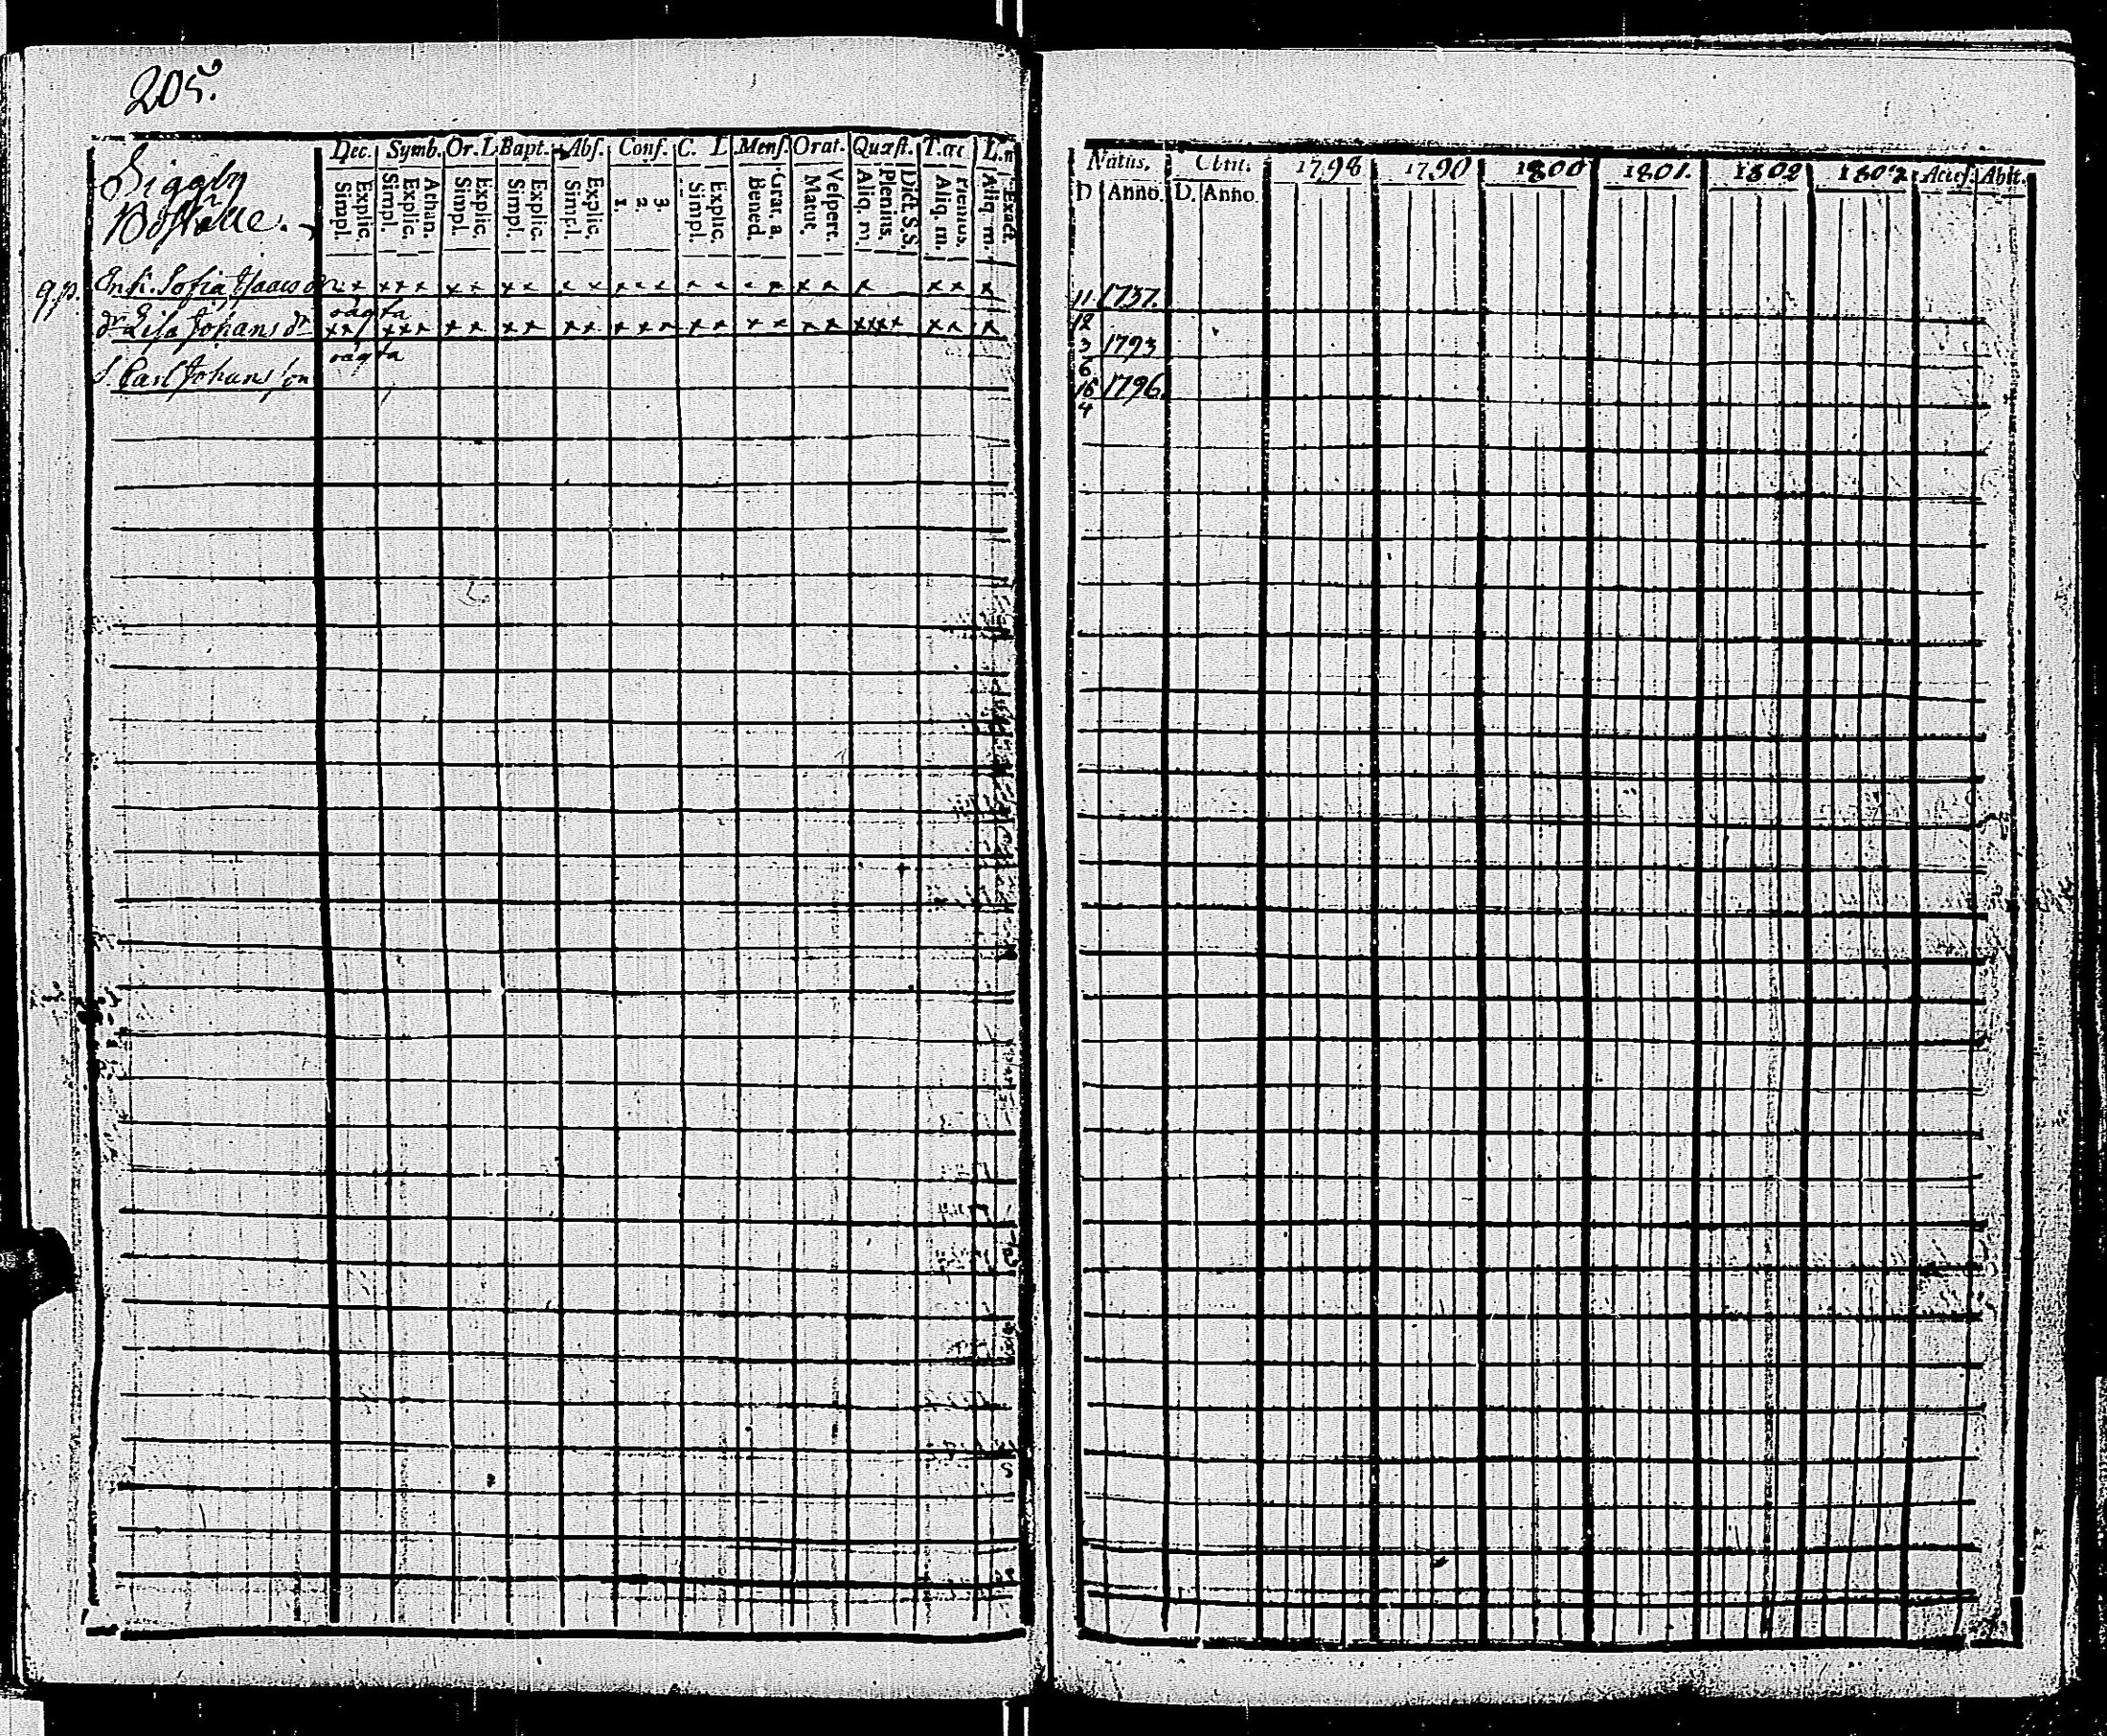 205.
Dec. Symb. Or. L Bapt. Abs. Conf. C. L Mens. Orat. Quæst. T. œc L. n
Siggby
Boställe.
Simpl. Explic. Simpl. Explic. Athan. Simpl. Explic. Simpl. Explic. Simpl. Explic. 1. 2. 3. Simpl. Explic. Bened. Grat. a. Matut. Vespert. Aliq. m. Plenius. Dict. S.S. Aliq. m. Plenius. Aliq. m. Exact.
q.p. Enk. Sofia Isaacs dr x x x x x x x x x x x x x x x x x x x x x x x
vagta
dr Lisa Johans dr x x x x x x x x x x x x x x x x x x x x x x x x x x x
vagta
S. Carl Johans son
Natus. Obiit. 1798 1799 1800 1801. 1802 1803 Acces. Abit.
D Anno. D. Anno.
11 1737.
12
3 1793
6
15 1796.
4